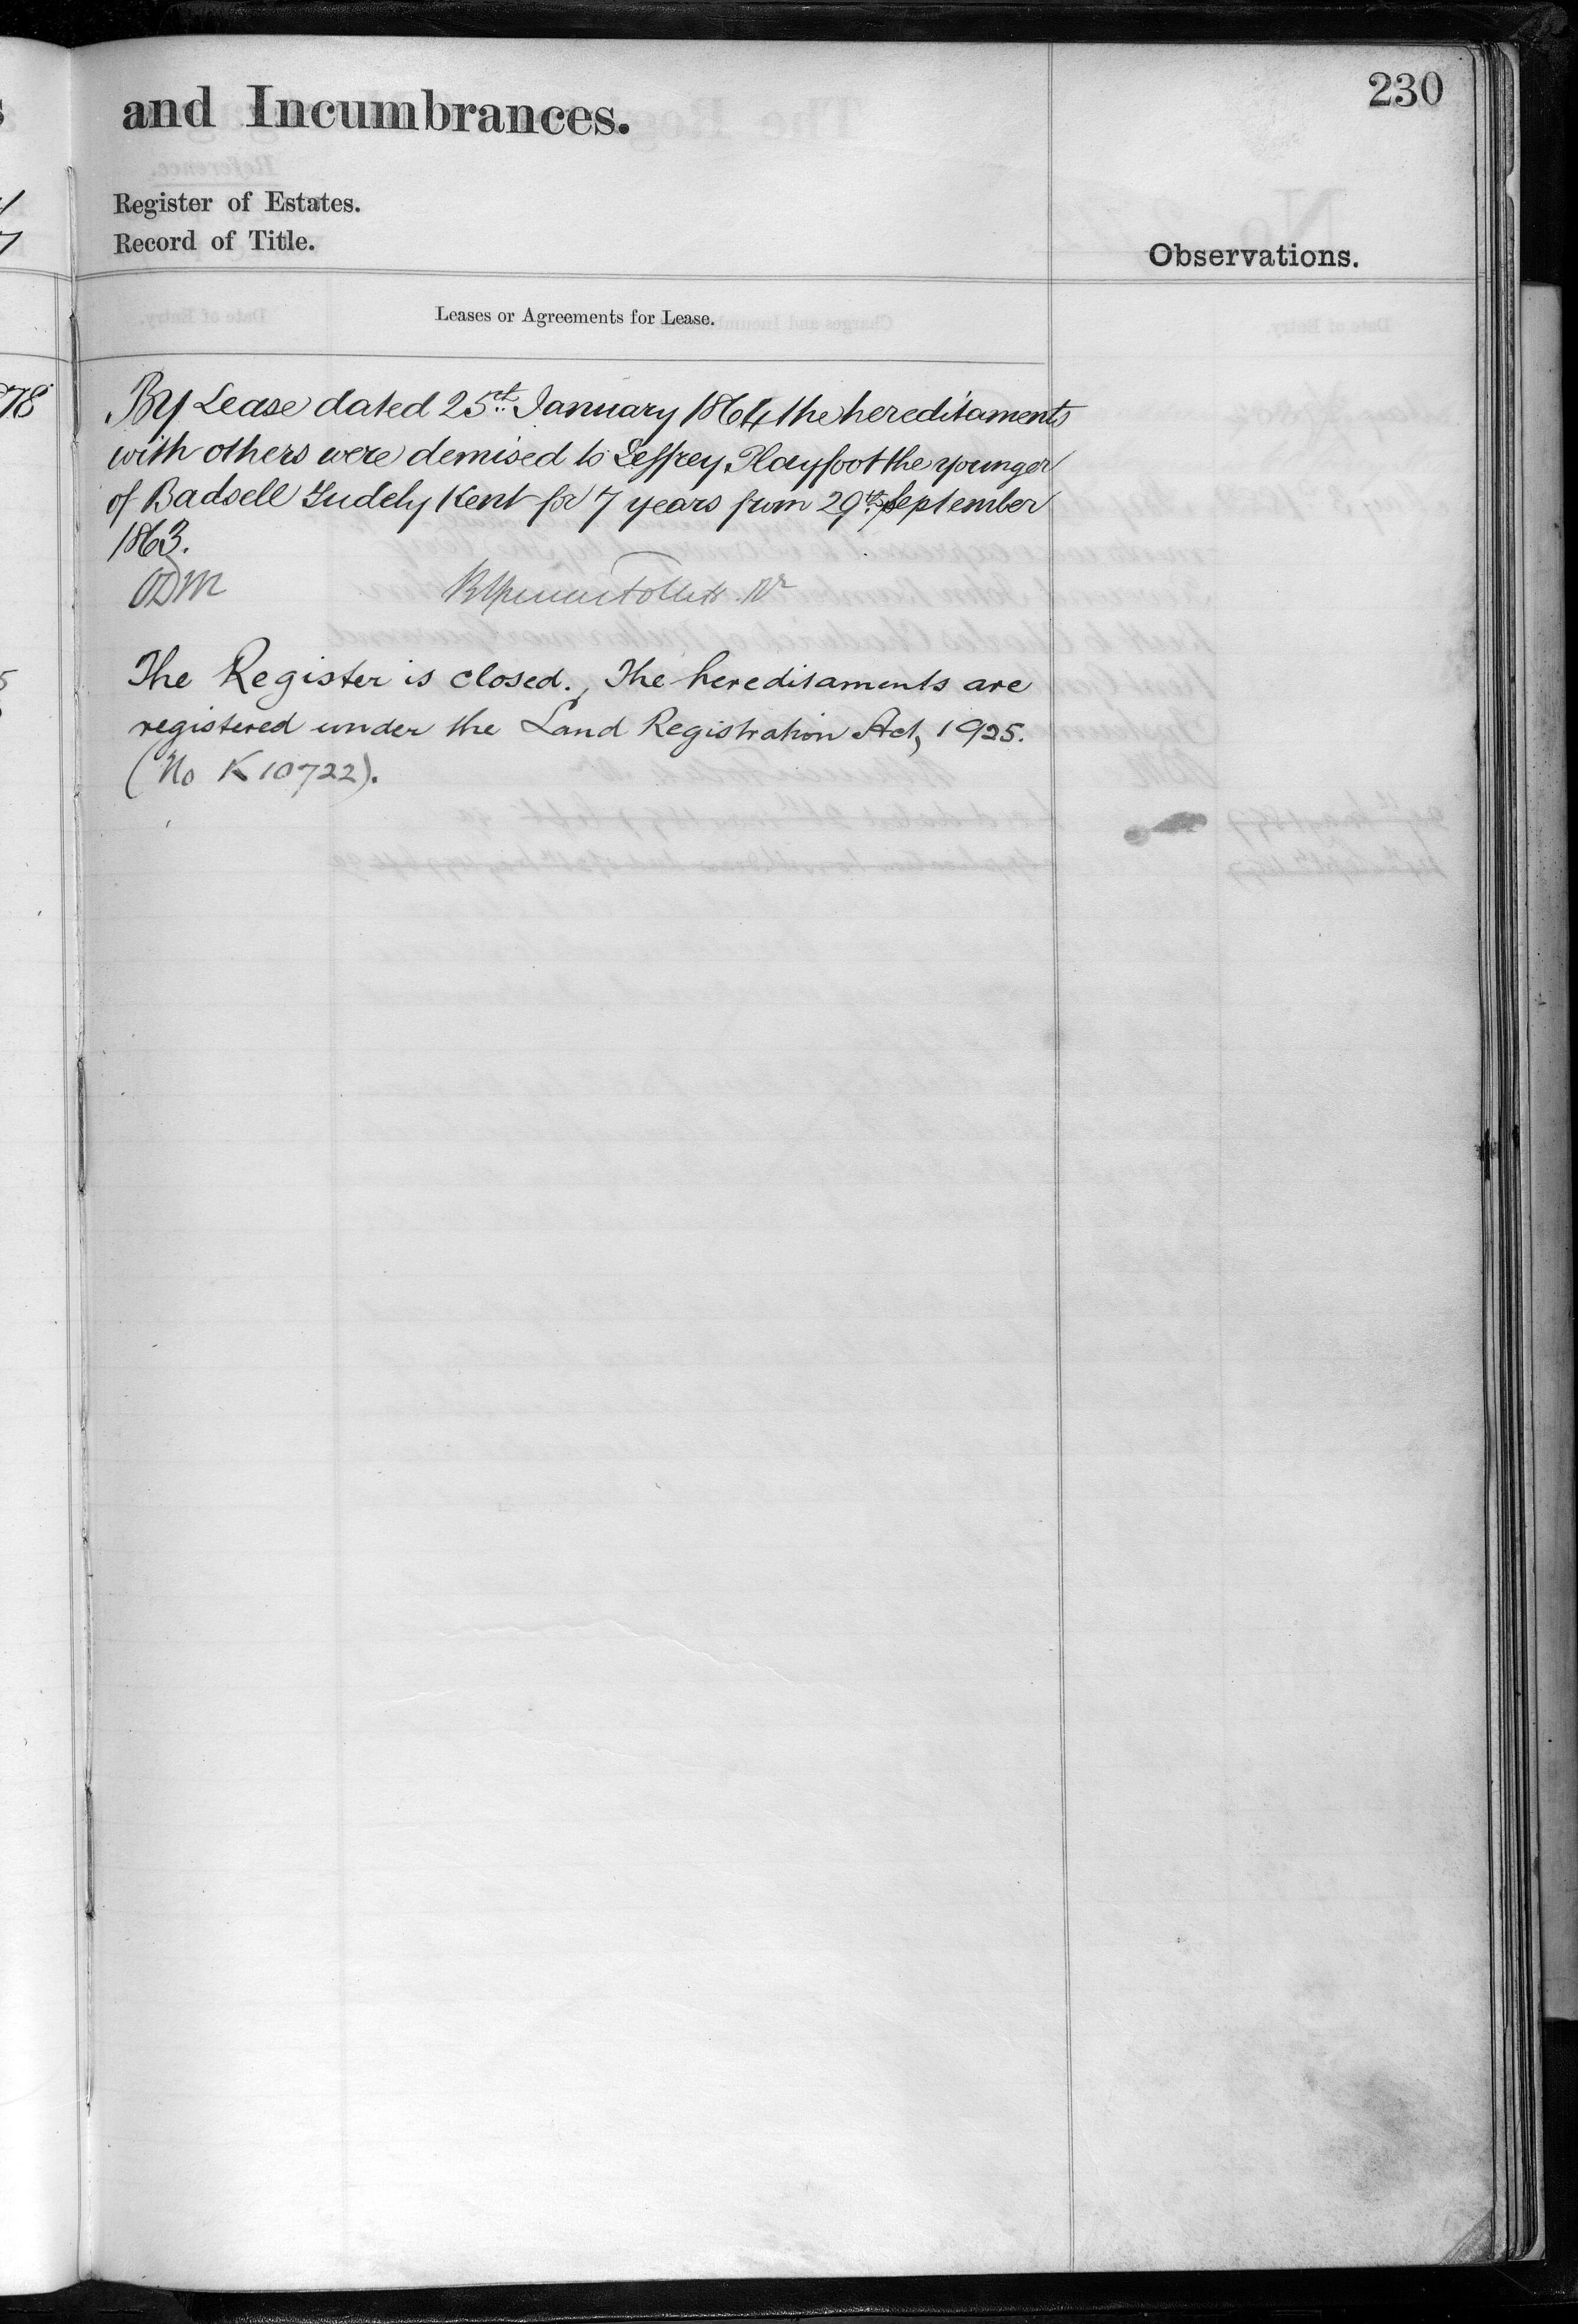 230
and Incumbrances.
Register of Estates.
Record of Title.
Observations.
Leases or Agreements for Lease.
78
By Lease dated 25th January 1864 the hereditaments
with others were demised to Jeffrey Playfoot the younger
of Badsell Tudely Kent for 7 years from 29th September
1863.
ODM
The Register is closed. The hereditaments are
registered under the Land Registration Act, 1925.
(No K 10722).